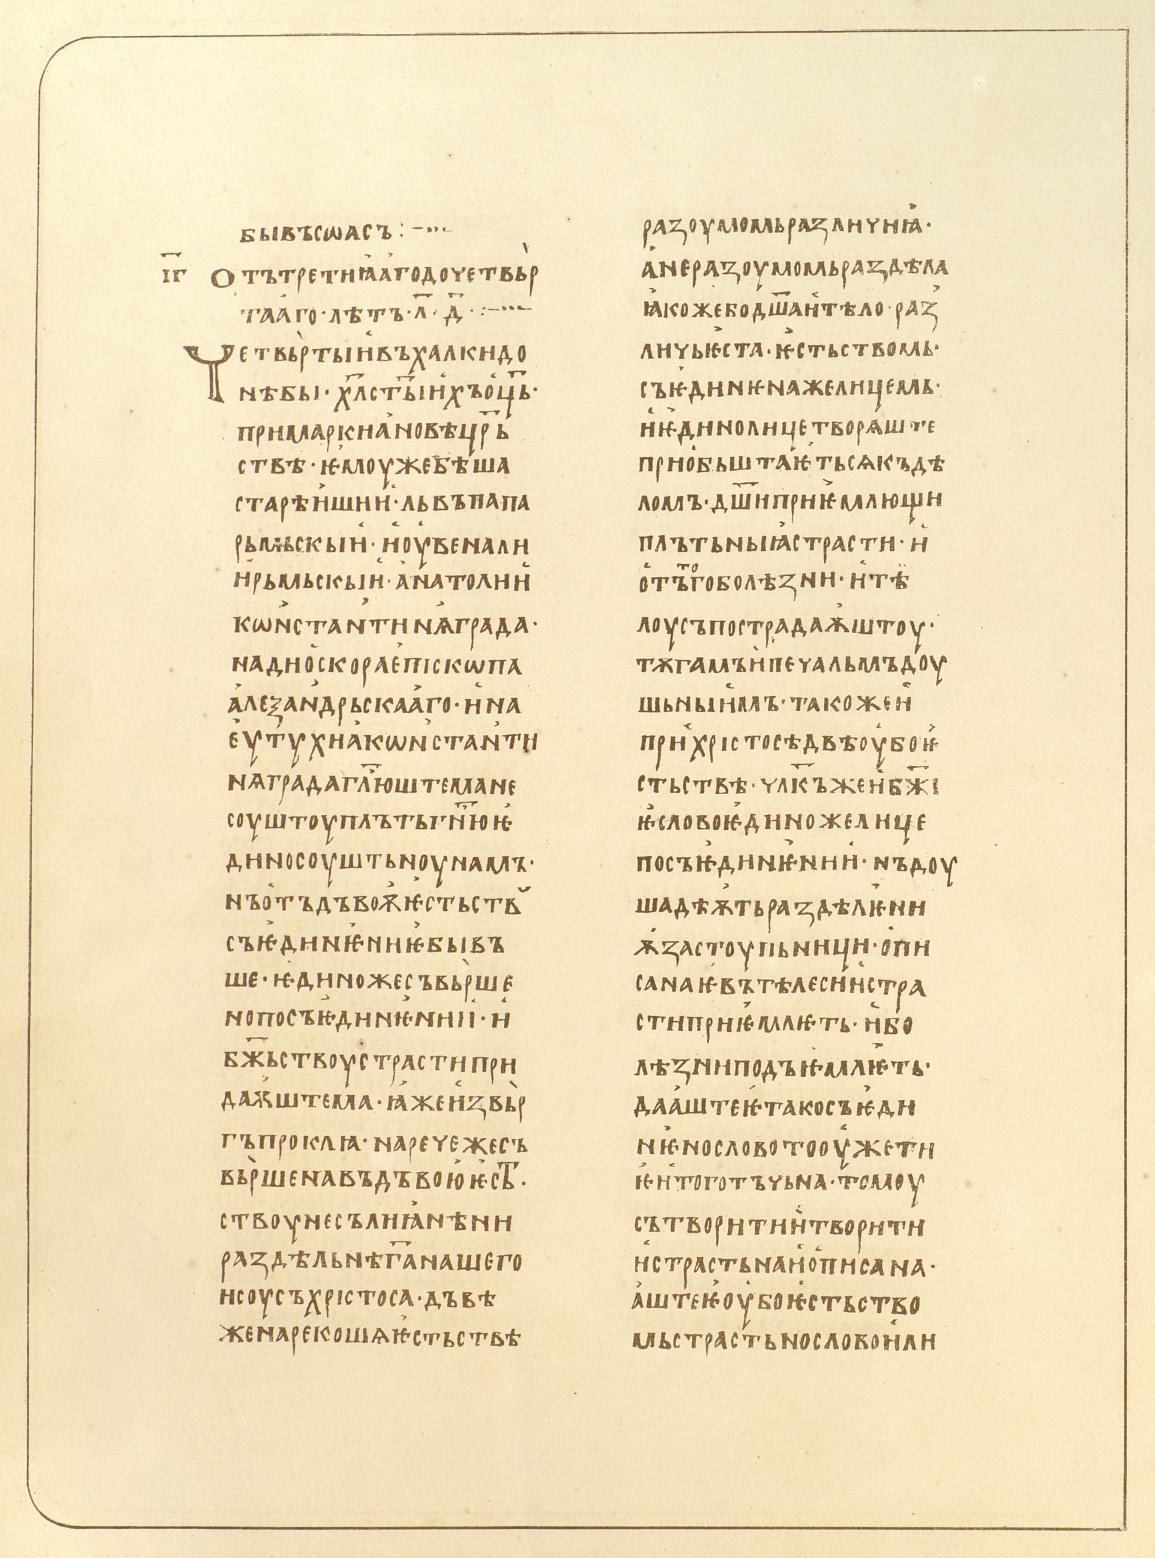 бывъсѡасъ :–···
і҃г Отътретиꙗагодочетвьр
тааго·лѣтъ·л҃·д҃·:–···–
Четвьртыивъхалкидо
нѣбы·хл҃стꙑ҃ихъо҃ць·
примаркиановѣцр҃ь
ствѣ·ѥмоужебѣша
старѣишии·львъпапа
рьмьскыи·иоувенали
ирьмьскыи·анатолии
кѡнстантинѧграда·
надиоскораепіскѡпа
алеѯандрьскааго·ина
еѵтѵхиакѡнстанти
нѧградагл҃юштемане
соуштоуплътьгн҃ию ѥ
диносоуштьноунамъ·
нъотъдъвоѫѥстьств
съѥдинѥниѥбывъ
ше·ѥдиножесъвьрше
нопосъѥдинѥнии·и
бж҃ьствоустрастипри
даѭштема·ꙗжеизвьр
гъпроклꙗ·наречежесъ
вьршенавъдъвоюѥст·
ствоунесълиꙗнѣни
раздѣльнѣга҃нашего
исоусъхрістоса·дъвѣ
женарекошѧѥстьствѣ
разоумомьразличиꙗ·
анеразоумомьраздѣла
ꙗкожебодш҃аитѣло·раз
личьѥста·ѥстьствомь·
съѥдинѥнажелицемь·
иѥдинолицетворѧште
приобьштаѥтьсѧкъдѣ
ломъ·дш҃иприѥмлющи
плътьныꙗстрасти·и
отътогоболѣзни·итѣ
лоусъпострадаѫштоу·
тѫгамъипечальмъдоу
шьныимъ·такожеи
прихрістосѣдвѣоубоѥ
стьствѣ·члк҃ъжеибж҃і
ѥсловоѥдиножелице
посъѥдинѥнии·нъдоу
шадѣѭтьраздѣлѥни
ѫзастоупьници·опи
санаѥвътѣлесиистра
стиприѥмлѥть·ибо
лѣзниподъѥмлѥть·
дааштеѥтакосъѥди
нѥнословотооужети
ѥитоготъчьна·томоу
сътворитиитворити
истрастьнаиописана·
аштеѥоубоѥстьство
мьстрастьнословоили